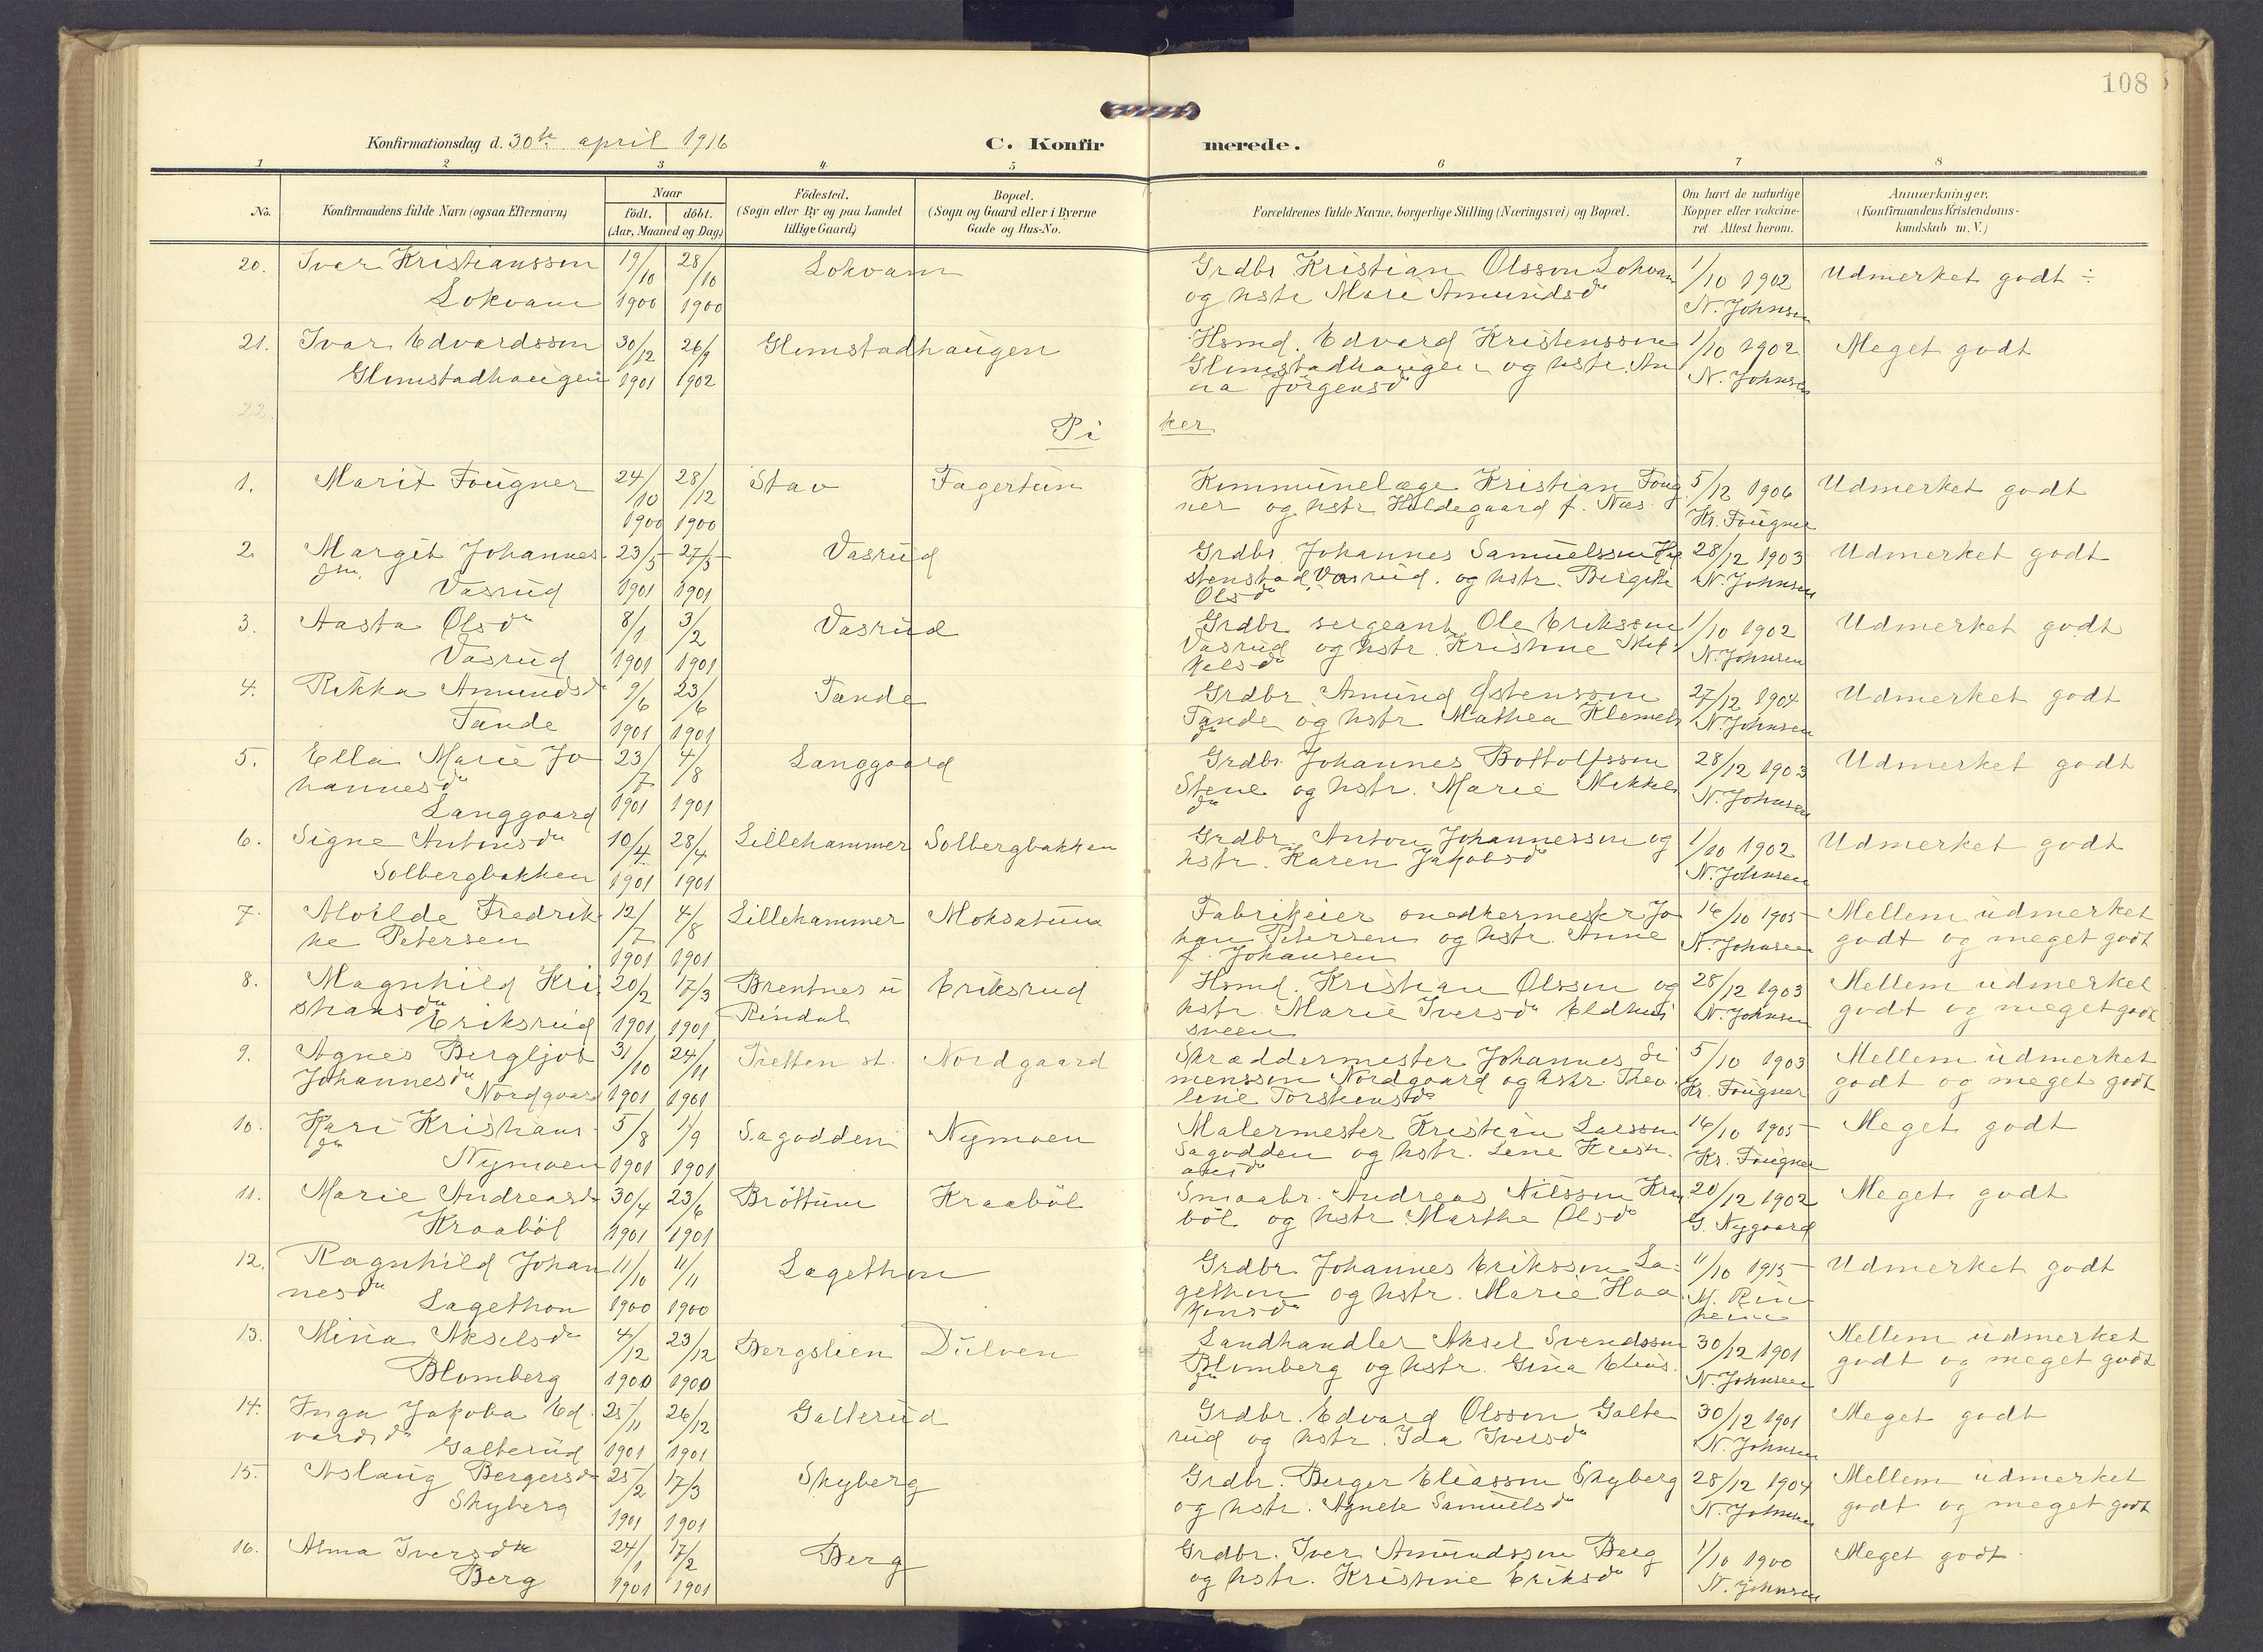 108
Konfirmationsdag d. 30te april 1916
C. Konfirmerede.
1 2 3 4 5 6 7 8
No.
Konfirmandens fulde Navn (ogsaa Efternavn)
Naar
födt. döbt.
(Aar, Maaned og Dag)
Födested.
(Sogn eller By og paa Landet
tillige Gaard)
Bopæl.
(Sogn og Gaard eller i Byerne
Gade og Hus-No.
Forældrenes fulde Navne, borgerlige Stilling (Næringsvei) og Bopæl.
Om havt de naturlige
Kopper eller vakcine-
ret Attest herom.
Anmærkninger.
(Konfirmandens Kristendoms-
kundskab m. V.)
20. Ivar Kristianssøn 19/10 28/10 Lokvam Grdbr Kristian Olssøn Lokvam 1/10 1902 Udmerket godt ÷
Lokvam 1900 1900 og hstr Mari Amundsdtr N. Johnsen
21. Ivar Edvardssøn 30/12 26/9 Glomstadhaugen Hsmd. Edvard Kristenssøn 1/10 1902 Meget godt
Glomstadhaugen 1901 1902 Glomstadhaugen og hstr. An N. Johnsen
na Jörgensdtr
22.
Piker
1. Marit Fougner 24/10 28/12 Stav Fagertun Kommunelæge Kristian Foug 5/12 1906 Udmerket godt
1900 1900 ner og hstr Hildegaard f. Næs Kr. Fougner
2. Margit Johannes 23/5 27/5 Vasrud Grdbr Johannes Samuelssøn 28/12 1903 Udmerket godt
dtr. Vasrud 1901 1901 stenstad, Vasrud. og hstr. Birgitte N. Johnsen
Olsdtr
3. Aasta Olsdtr 8/1 3/2 Vasrud Grdbr sergeant Ole Erikssøn 1/10 1902 Udmerket godt
Vasrud 1901 1901 Vasrud og hstr. Kristine N. Johnsen
4. Rikka Amundsdtr 9/6 23/6 Tande Grdbr Amund Østenssøn 27/12 1904 Udmerket godt
Tande 1901 1901 Tande og hstr Mathea Klemets N. Johnsen
dtr
5. Ella Marie Jo 23/7 4/8 Langgaard Grdbr Johannes Bottolfssøn 28/12 1903 Udmerket godt
hannesdtr
Langgaard 1901 1901 Stene og hstr. Marie Mikkels N. Johnsen
dtr
6. Signe Antonsdtr 10/4 28/4 Lillehammer Solbergbakken Grdbr Anton Johannessøn og 1/10 1902 Udmerket godt
Solbergbakken 1901 1901 hstr. Karen Jakobsdtr N. Johnsen
7. Moilde Fredrik 12/7 4/8 Lillehammer Moksatun Fabrikeier snedkermester Jo 16/10 1905 Mellem udmerket
ke Petersen 1901 1901 han Petersen og hstr. Anne N. Johnsen godt og meget godt
f. Johansen
8. Magnhild Kri 20/2 17/3 Brentnes u Eriksrud Hsmd. Kristian Olssøn og 28/12 1903 Mellem udmerket
stiansdtr Eriksrud 1901 1901 Rindal hstr. Marie Iversdtr Eldhus N. Johnsen godt og meget godt
sveen
9. Agnes Bergljot 31/10 24/11 Tretten st. Nordgaard Skræddermester Johannes Si 5/10 1903 Mellem udmerket
Johannesdtr Nordgaard 1901 1901 menssøn Nordgaard og hstr. Theo Kr. Fougner godt og meget godt
line Torstensdtr
10. Kari Kristians 5/8 1/9 Sagodden Nymoen Malermester Kristian Larssøn 16/10 1905 Meget godt
dtr Nymoen 1901 1901 Sagodden og hstr. Lene Kristi Kr. Fougner
ansdtr
11. Marie Andreasdtr 30/4 23/6 Bröttum Kraaböl Smaabr. Andreas Nilssøn Kraa 20/12 1902 Meget godt
Kraaböl 1901 1901 böl og hstr Marthe Olsdtr G. Nygaard
12. Ragnhild Johan 11/10 11/11 Lagethon Grdbr Johannes Erikssøn La- 11/10 1915 Udmerket godt
nesdtr Lagethon 1900 1900 gethon og hstr. Marie Haa
konsdtr
13. Mina Akselsdtr 4/12 23/12 Bergslien Dulven Landhandler Aksel Svendssøn 30/12 1901 Mellem udmerket
Blomberg 1900 1900 Blomberg og hstr. Gina Elias N. Johnsen godt og meget godt
dtr
14. Inga Jakoba Ed 25/11 26/12 Galterud Grdbr. Edvard Olssøn Galte 30/12 1901 Meget godt
vardsdtr Galterud 1901 1901 rud og hstr. Ida Iversdtr N. Johnsen
15. Aslaug Bergersdtr 25/2 17/3 Skyberg Grdbr. Berger Eliassøn Skyberg 28/12 1904 Mellem udmerket
Skyberg 1901 1901 og hstr. Agnete Samuelsdtr N. Johnsen godt og meget godt
16. Alma Iversdtr 24/1 17/2 Berg Grdbr. Iver Amundssøn Berg 1/10 1900 Meget godt
Berg 1901 1901 og hstr. Kristine Eriksdtr N. Johnsen